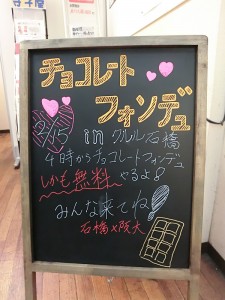 チョコレート
フォンデュ
2/15
in クルル石橋
4時からチョコレートフォンデュ
しかも無料やるよ!
みんな来てね!
石橋×阪大